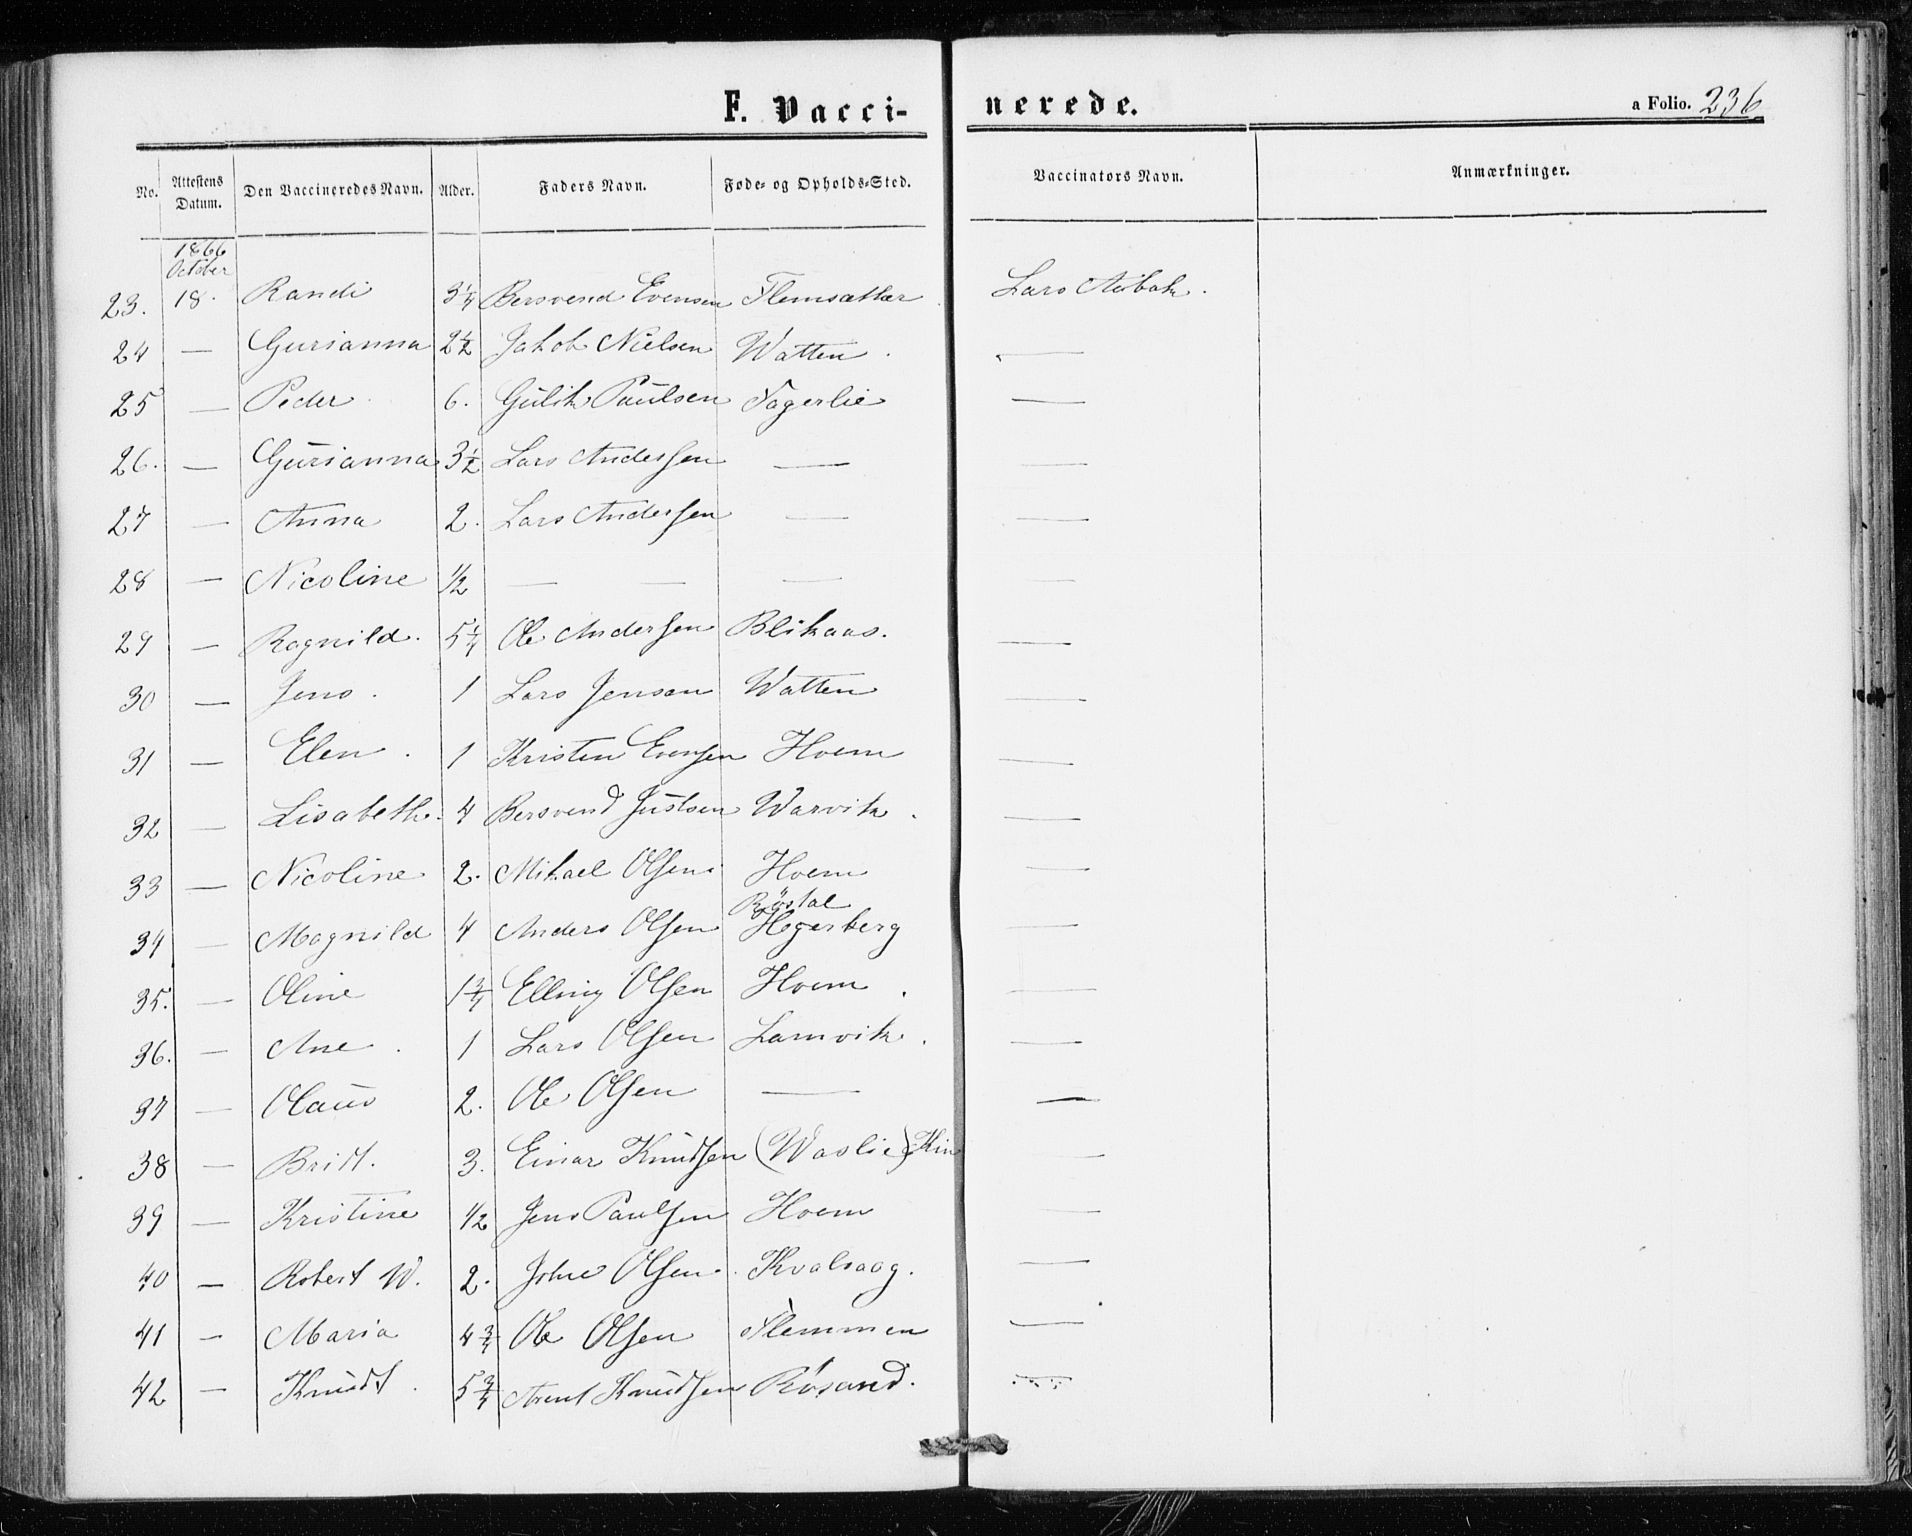 F. Vacci-
nerede.
a Folio. 236
No. Attestens Datum. Den Vaccineredes Navn. Alder. Faders Navn. Føde- og Opholds-Sted. Vaccinators Navn. Anmærkninger.
1866
October
23. 18. Randi 3 1/4 Bersvend Evensen Flemsæther Lars Aübak.
24 — Gurianna 2 1/2 Jakob Nielsen Watten. —
25 — Peder 6. Gülik Paülsen Fagerlie —
26. — Gürianna 3 1/2 Lars Andersen — —
27 — Anna 2. Lars Andersen — —
28 — Nicoline 1/2 — — — —
29 — Ragnild. 5 1/4 Ole Andersen Blikaas. —
30 — Jens. 1 Lars Jensen Watten —
31 — Elen. 1 Kristen Evensen Hoem —
32 — Lisabeth. 4 Bersvend Jüstsen Warvik. —
33 — Nicoline 2. Mikael Olsen Hoem —
Röstal
34 — Magnild 4 Anders Olsen Hegerberg —
35. — Oline 1 3/4 Elling Olsen Hoem. —
36. — Ane. 1 Lars Olsen Lamvik. —
37 — Olaüs 2. Ole Olsen — —
38 — Britt. 3. Einar Knüdsen (Waslie) —
39 — Kristine 1/2 Jens Paulsen Hoem —
40 — Robert W. 2. Johne Olsen. Kvalsaag. —
41 — Maria 4 3/4 Ole Olsen Flemmen —
42 — Knüdt. 5 3/4 Arent Knüdsen Røsand. —